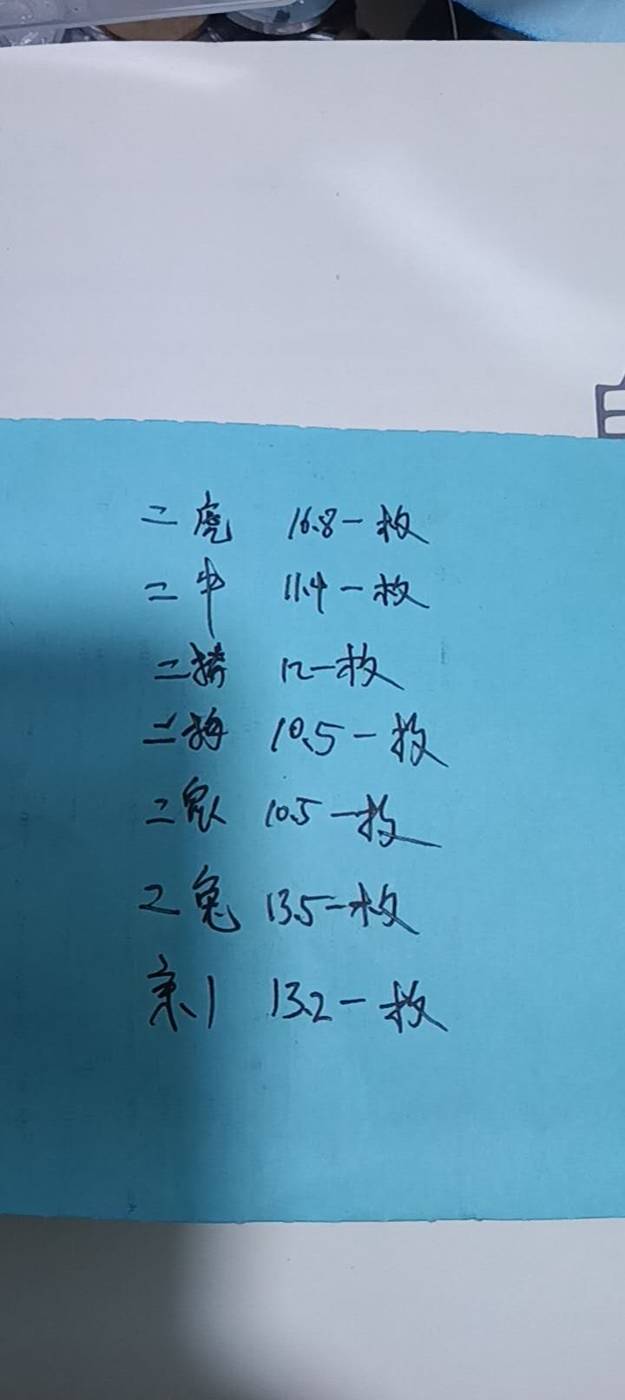 二虎 16.8一枚
二牛 11.4一枚
二 12一枚
二梅 10.5一枚
二 10.5一枚
2兔 13.5一枚
京1 13.2一枚